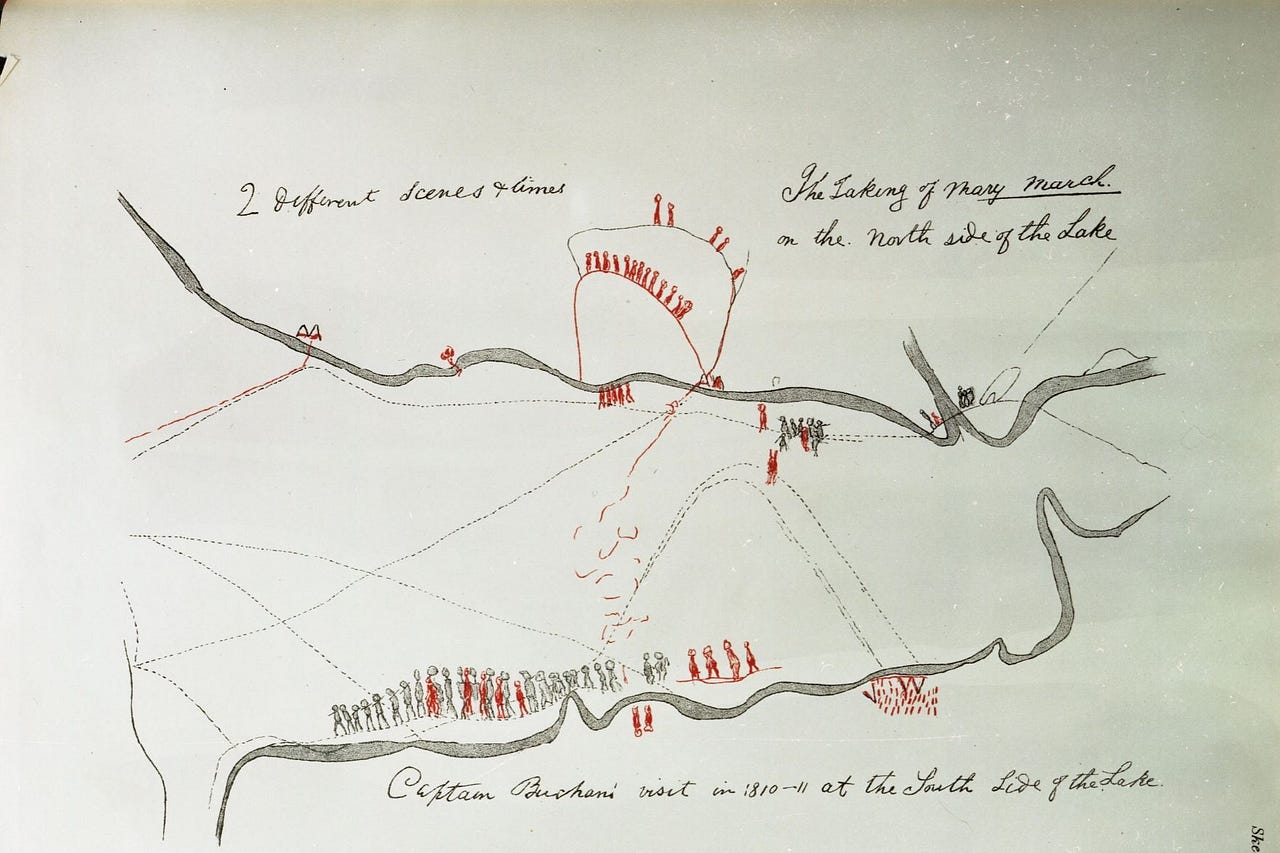 2 different Scenes & times
The Taking of Mary March.
on the. North side of the Lake
Captain Buchans visit in 1810-11 at the South Side of the Lake.
Ske